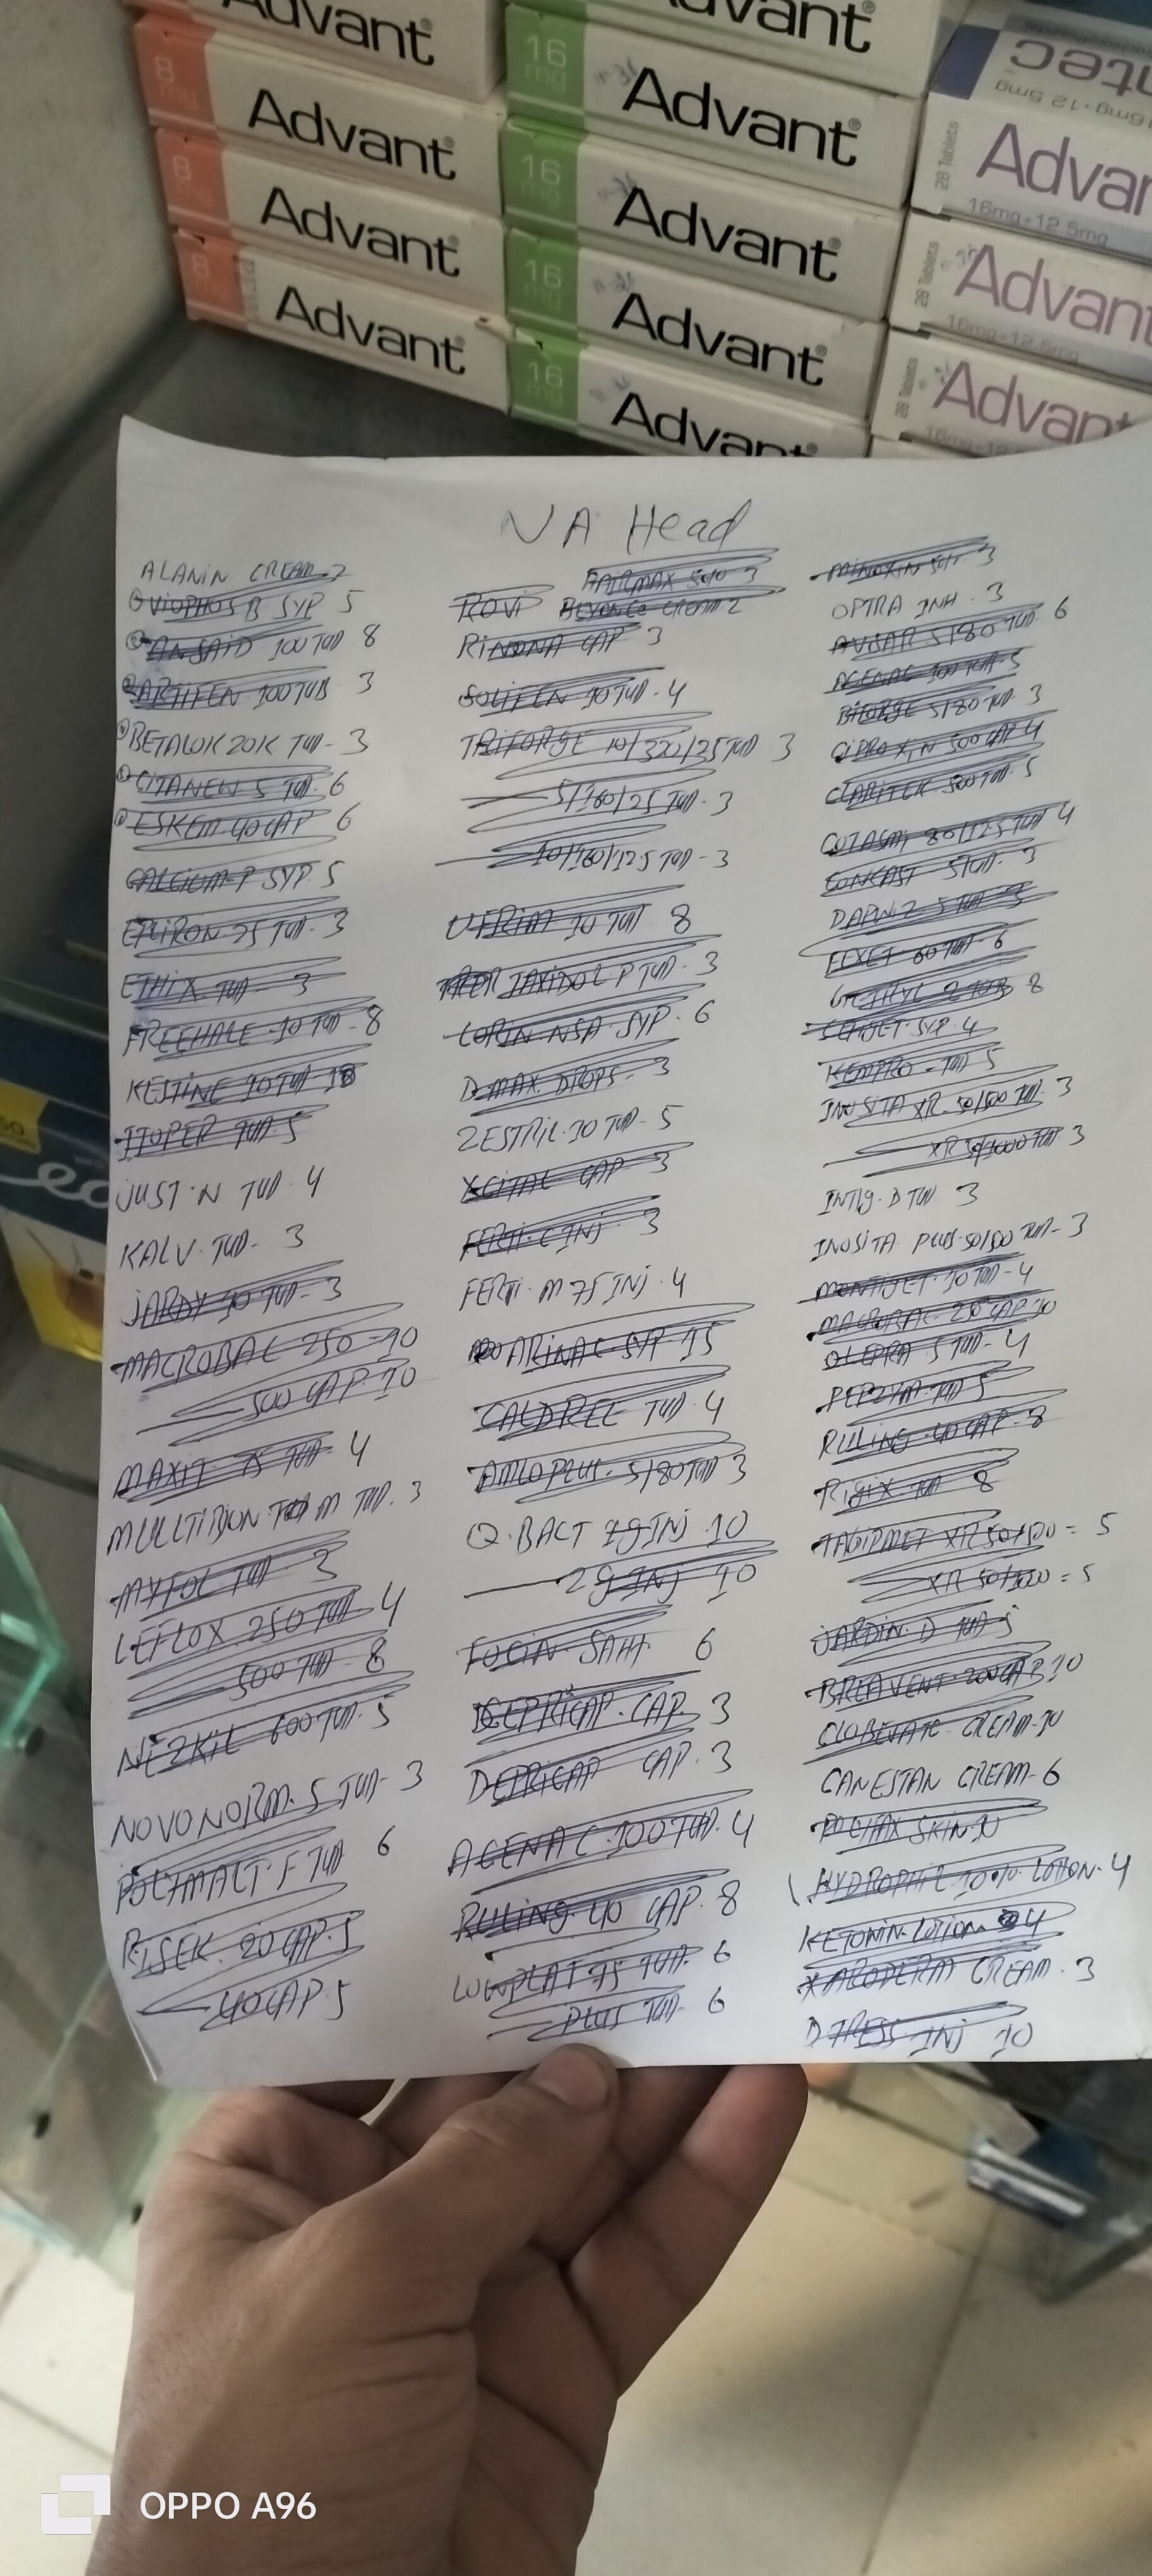 Advant
8
mg
Advant
8
mg
Advant
8
Advant
Advant
16
mg
Advant
16
mg
Advant
16
mg
Advant
16
mg
Advant
28 Tablets
Advan
16mg+12.5mg
28 Tablets
Advant
16mg+12.5mg
28 Tablets
Advant
NA Head
ALANIN CREAM
VIOPHOS B SYP 5
ANSAID 100 TAB 8
ARTIFEN 100 TAB 3
BETALOK ZOK TAB - 3
CITANEW 5 TAB. 6
ESKEM 40 CAP 6
CALCIUM-P SYP. 5
EPLIRON 25 TAB - 3
ETHIX TAB - 3
FREEHALE 10 TAB - 8
KESTINE 10 TAB
ITOPER TAB 5
JUST·N TAB - 4
KALV. TAB - 3
JARDY 10 TAB - 3
MACROBAC 250 - 10
500 CAP. 10
MAXIT 75 TAB - 4
MULLTIBION M TAB. 3
MYFOL TAB - 3
LEFLOX 250 TAB - 4
500 TAB - 8
NEZKIL 600 TAB. 5
NOVONORM. 5 TAB - 3
POLYMALT F TAB 6
RISEK 20 CAP. 5
40 CAP 5
HAIRMAX 3
ROVI BEYONCE CREAM 2
CAP 3
SOLIFEN 10 TAB - 4
TRIFORGE 10/320/25 TAB 3
5/160/25 TAB. 3
10/160/12.5 TAB - 3
UFRIM 10 TAB 8
TAXIDOL P TAB. 3
CORIN NSA SYP. 6
D-MAX DROPS - 3
ZESTRIL 10 TAB - 5
XCITAL CAP - 3
FERTI-C INJ 3
FERTI-M 75 INJ. 4
ARINAC SYP 15
CALDREE TAB. 4
AMLOPLUS 5/80 TAB 3
Q-BACT INJ 10
2g INJ 10
FOCIN SAHH 6
DEPRICAP CAP. 3
DEPRICAP CAP. 3
AGENAC 100 TAB. 4
RULING 40 CAP. 8
LOWPLAT 75 TAB - 6
PLUS TAB - 6
MINOXIN 3
OPTRA INH. 3
AVSAR 5/80 TAB 6
AGENAC 100 TAB. 5
BIFORGE 5/80 TAB. 3
CIPROXIN 500 CAP 4
CLARITEK 500 TAB. 5
COTASMI 80/12.5 TAB 4
CONCAST 5 TAB. 3
DAPWIZ 5 TAB 3
FEXET 60 TAB - 6
GETRYL 2 TAB 8
SYP. 4
KEMPRO - TAB 5
INOSITA XR. 50/500 TAB. 3
XR 50/1000 TAB 3
INTIG-D TAB 3
INOSITA PLUS 50/500 TAB - 3
MONTIGET 10 TAB - 4
MACROBAC 250 CAP 10
OLEPRA 5 TAB - 4
PEPZYM TAB 5
RULING 40 CAP - 8
RIGIX TAB 8
TAGIPMET XR 50/500 = 5
XR 50/1000 = 5
JARDIN-D TAB 5
BREAVENT 200 CAP. 10
CLOBEVATE CREAM - 10
CANESTAN CREAM - 6
POLYFAX SKIN 10
HYDROPHIL 10% LOTION. 4
KETONIN LOTION 4
XARODERM CREAM. 3
D-TRESS INJ 10
OPPO A96